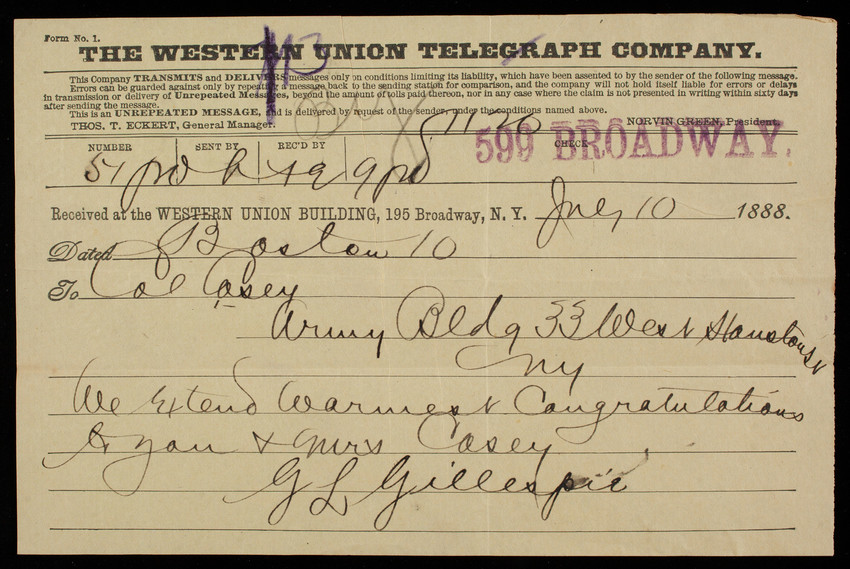 Form No. 1.
THE WESTERN UNION TELEGRAPH COMPANY.
This Company TRANSMITS and DELIVERS messages only on conditions limiting its liability, which have been assented to by the sender of the following message.
Errors can be guarded against only by repeating a message back to the sending station for comparison, and the company will not hold itself liable for errors or delays
in transmission or delivery of Unrepeated Messages, beyond the amount of tolls paid thereon, nor in any case where the claim is not presented in writing within sixty days
after sending the message.
This is an UNREPEATED MESSAGE, and is delivered by request of the sender, under the conditions named above.
THOS. T. ECKERT, General Manager. NORVIN GREEN, President.
NUMBER SENT BY REC'D BY CHECK
599 BROADWAY.
Received at the WESTERN UNION BUILDING, 195 Broadway, N. Y. July 10 1888.
Dated Boston 10
To Col Casey
Army Bldg 33 West Houston St
NY
We Extend Warmest Congratulations
to you & Mrs Casey
G L Gillespie